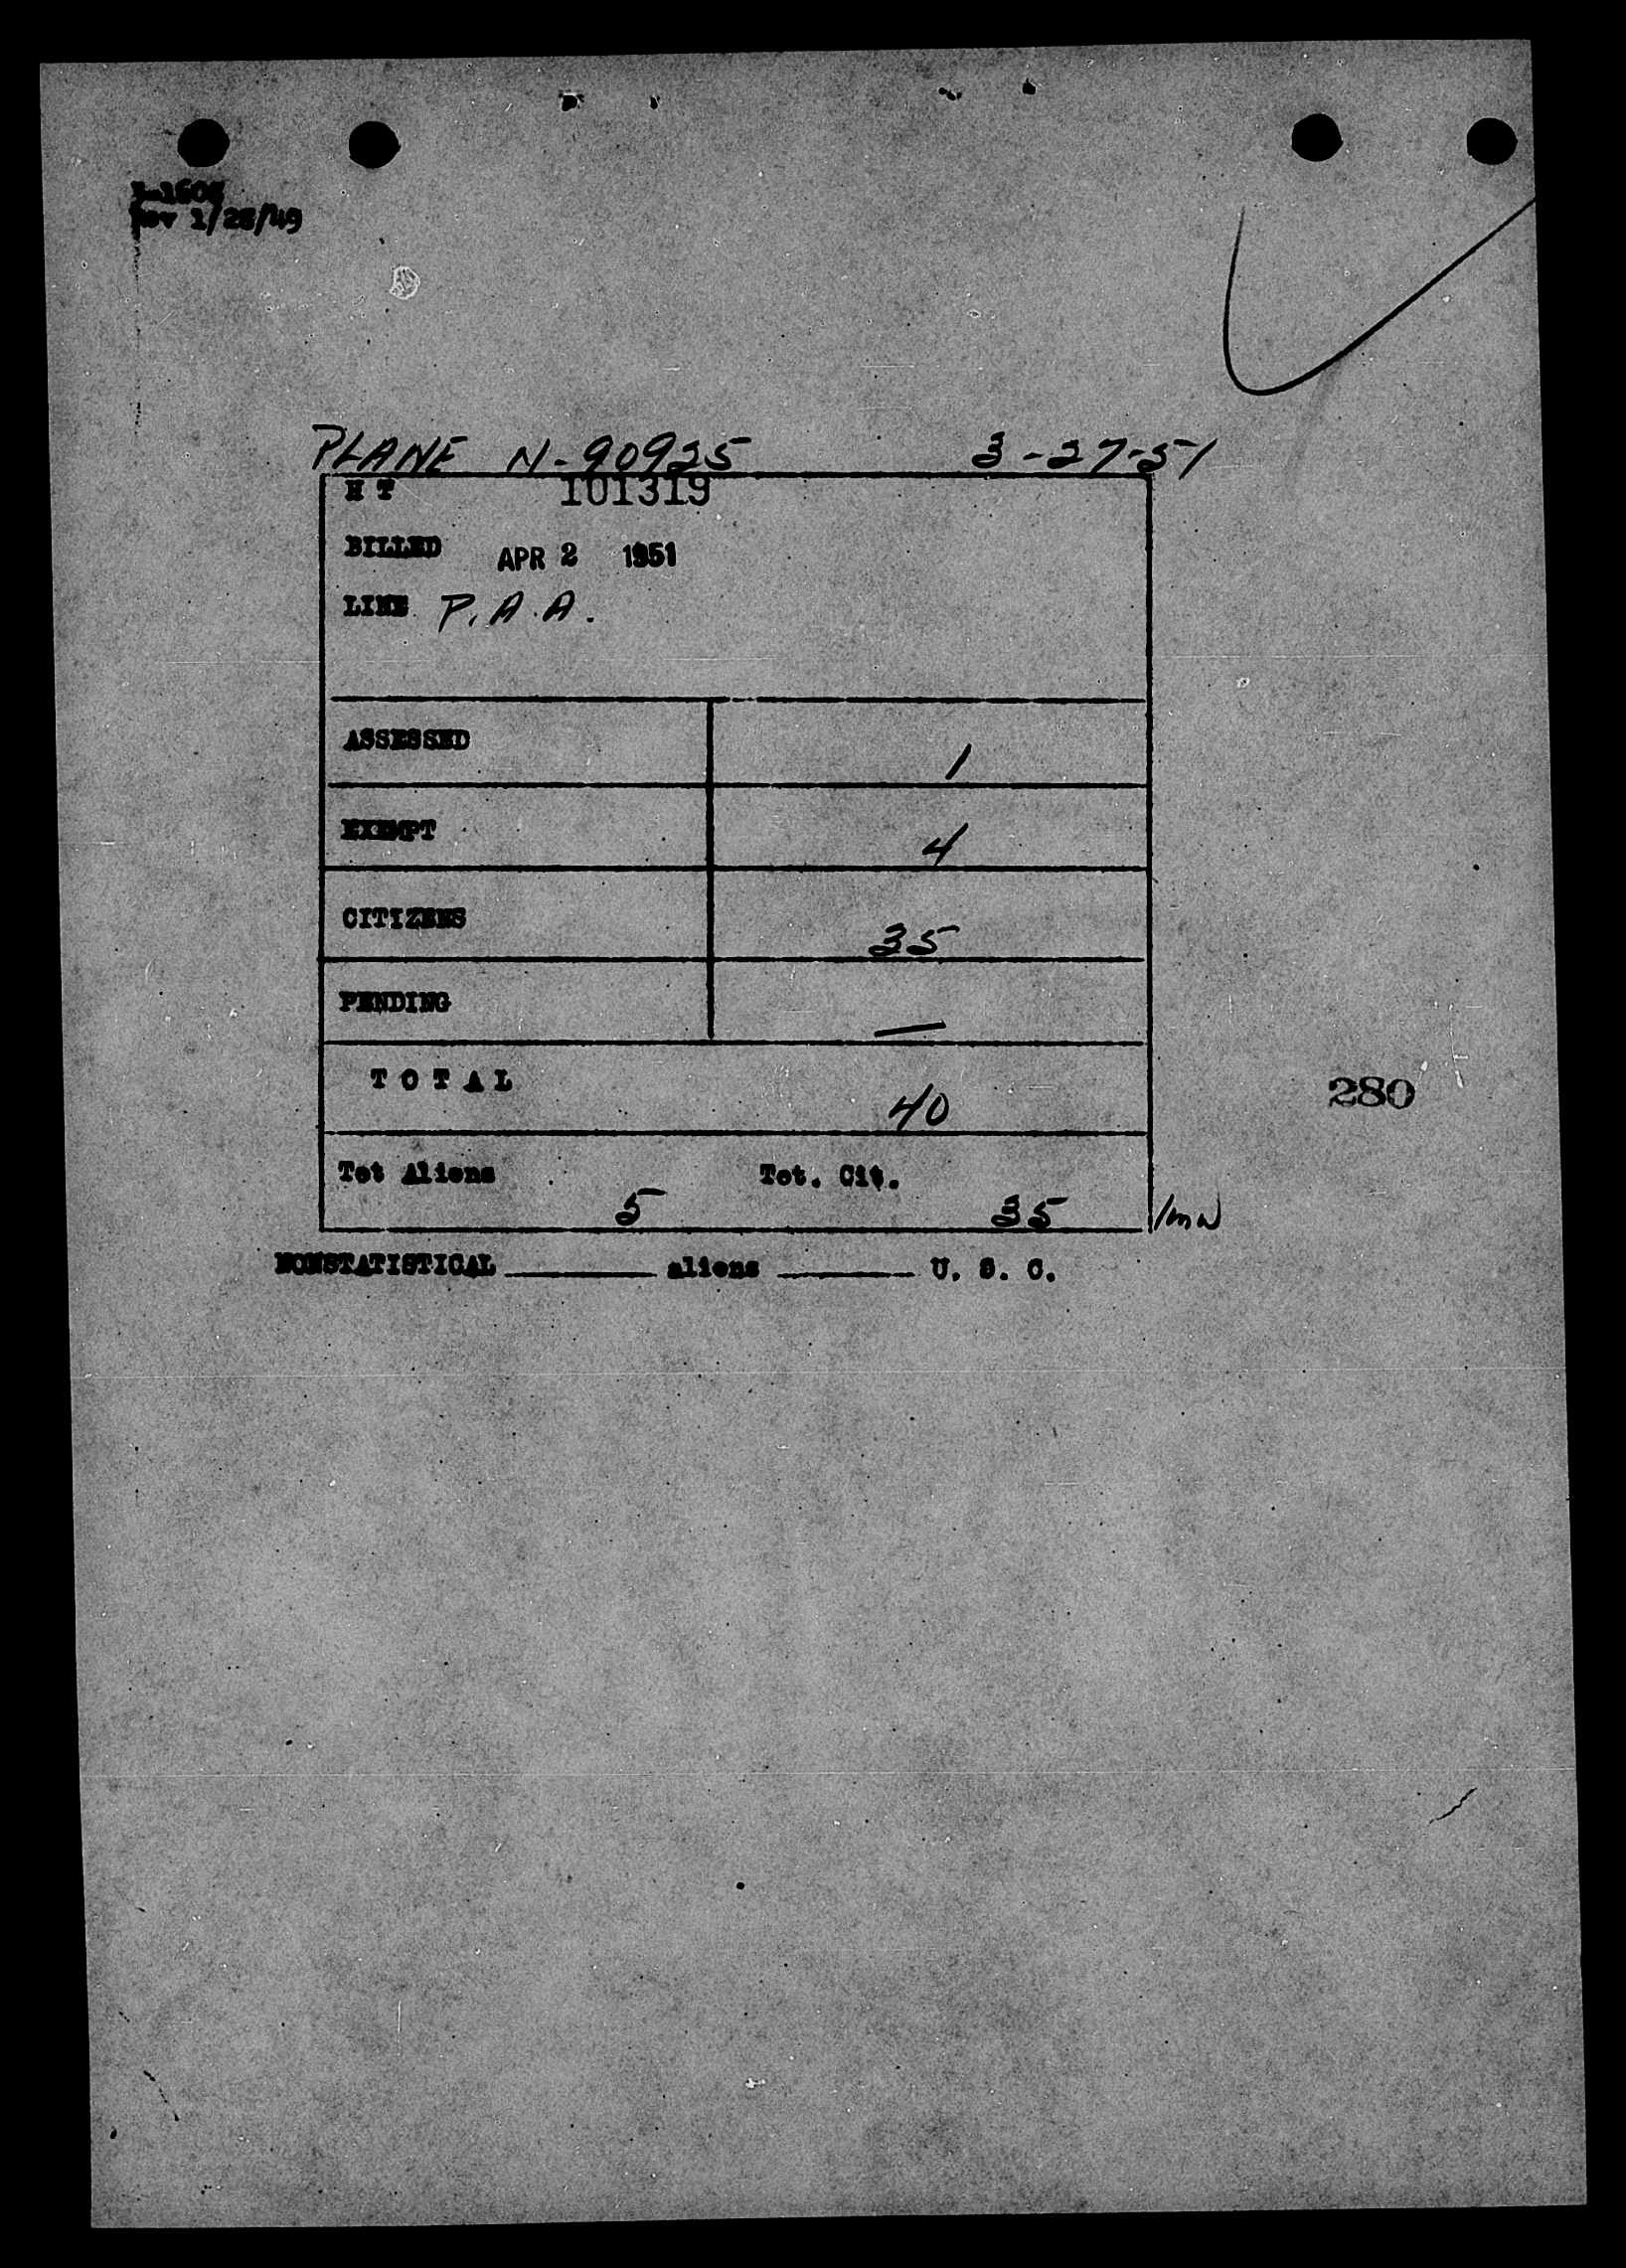 Rev 1/28/49
PLANE N-90925 3-27-51
H T 101319
BILLED APR 2 1951
LINE P.A.A.
ASSESSED 1
EXEMPT 4
CITIZENS 35
PENDING —
TOTAL 40
280
Tot Aliens 5 Tot. Cit. 35
NONSTATISTICAL ______ aliens ______ U. S. C.